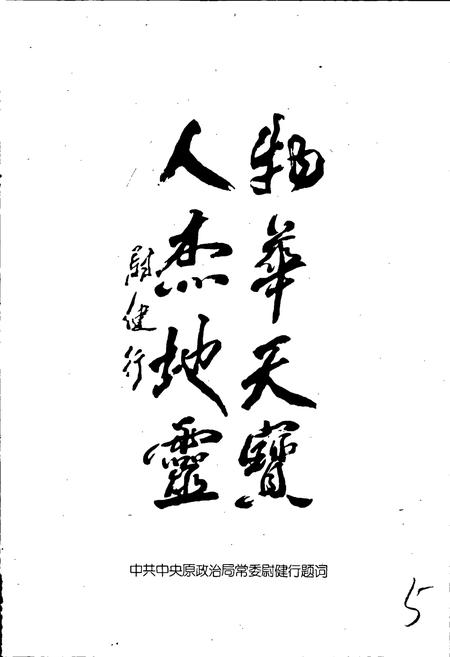 物華天寶
人杰地靈
尉健行
中共中央原政治局常委尉健行题词
5